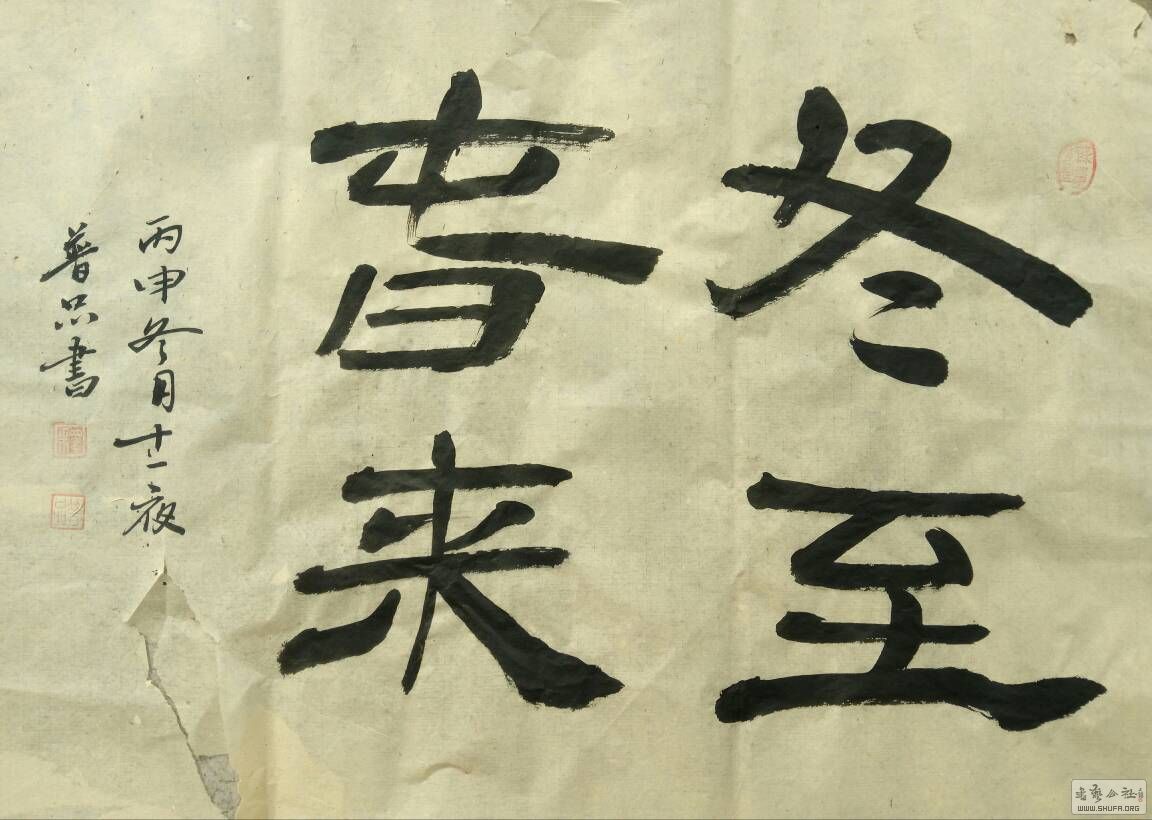 冬至
春来
丙申冬月十一夜
普品書
書艺公社
WWW.SHUFA.ORG